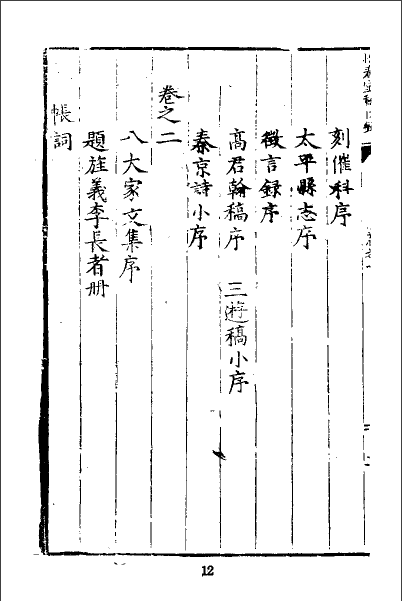 刻催科序
太平縣志序
徵言録序
高君翰稿序　三遊稿小序
秦京詩小序
卷之二
八大家文集序
題旌義李長者册
帳詞
12